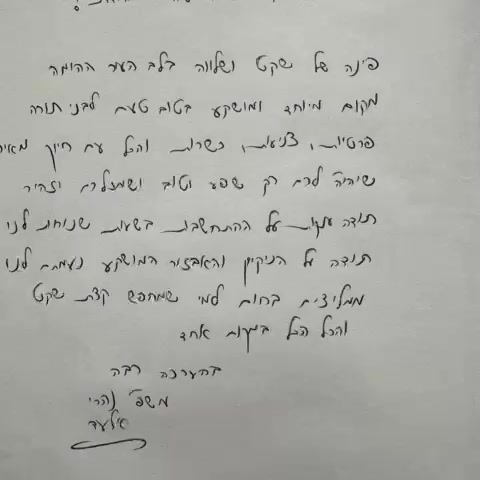 פינה של שקט ושלווה בלב העיר ההומה
מקום מיוחד ומושקע בטוב טעם לבני תורה
פרטיות, צניעות, כשרות והכל עם חיוך מאיר
שיהיה לכם רק שפע וטוב ושמזלכם יזהיר
תודה ענקית על ההתחשבות בשעות שנוחות לנו
תודה על הניקיון והאבזור המושקע נעמתם לנו
ממליצים בחום למי שמחפש קצת שקט
והכל הכל במקום אחד
בהערכה רבה
משפ' נהרי
אלעד